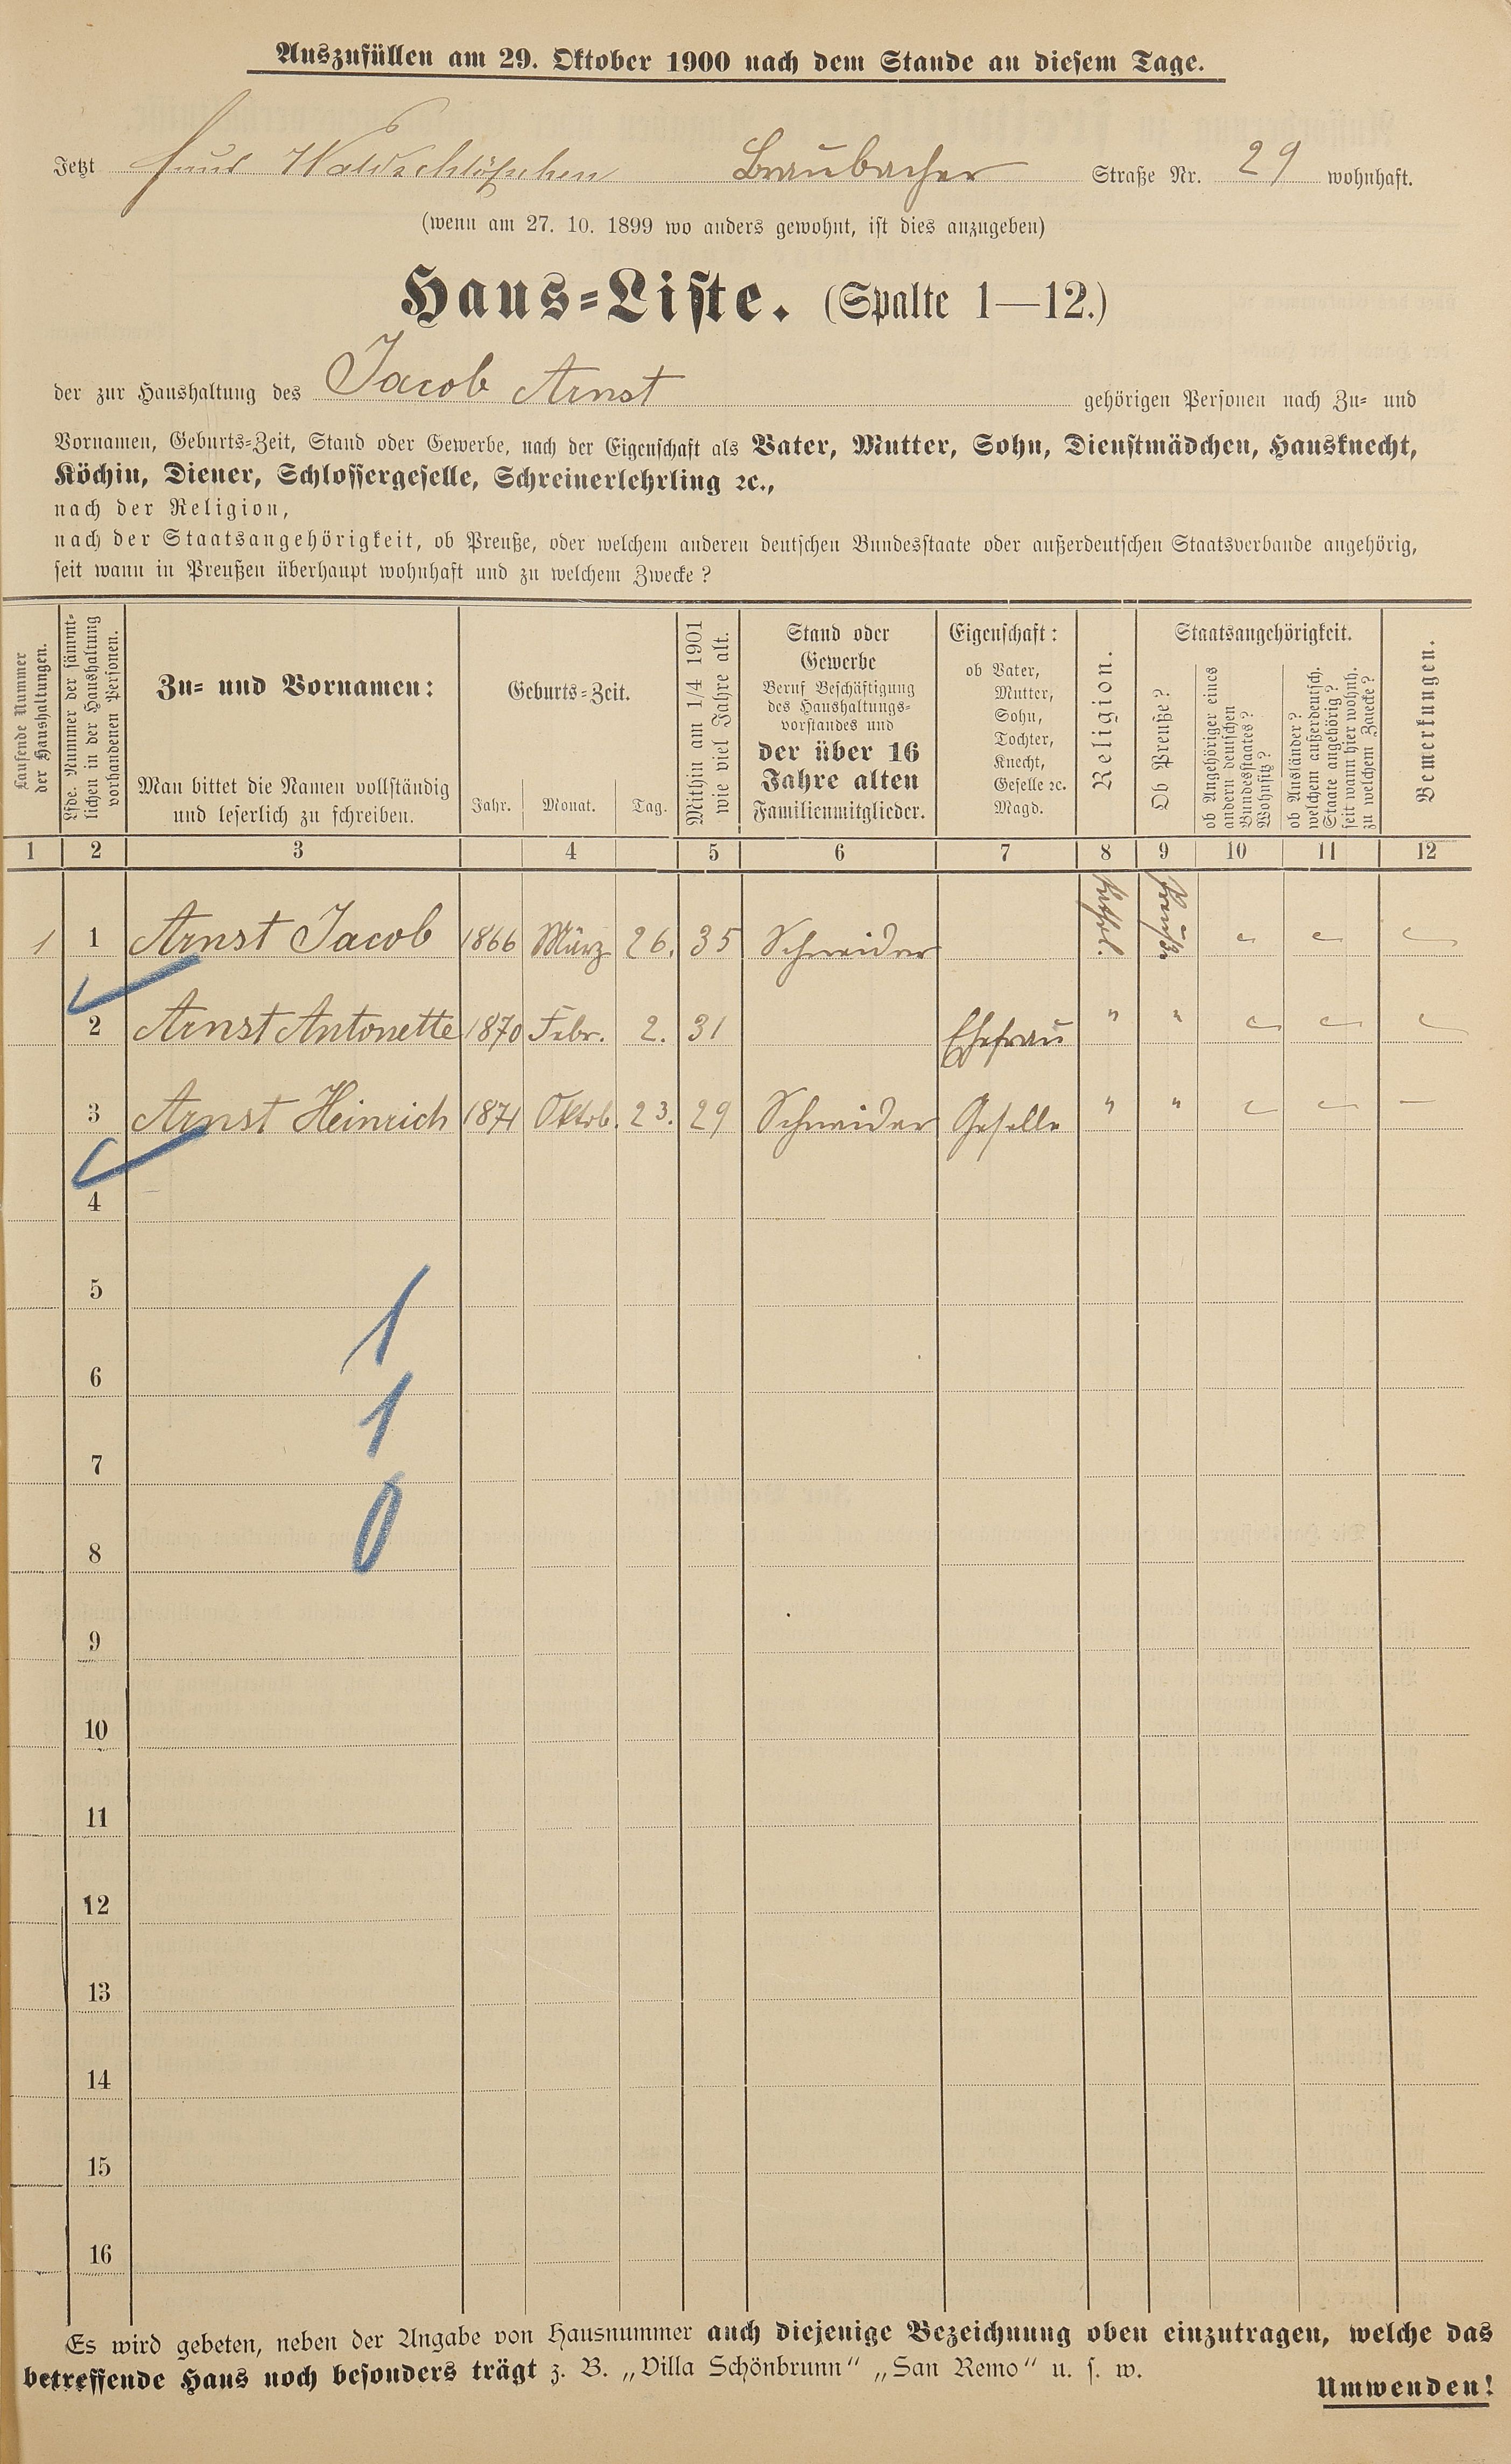 Auszufüllen am 29. Oktober 1900 nach dem Stande an diesem Tage.
Jetzt Haus Waldschlößchen Braubacher Straße Nr. 29 wohnhaft.
(wenn am 27. 10. 1899 wo anders gewohnt, ist dies anzugeben)
Haus=Liste. (Spalte 1—12.)
der zur Haushaltung des Jacob Arnst gehörigen Personen nach Zu= und
Vornamen, Geburts=Zeit, Stand oder Gewerbe, nach der Eigenschaft als Vater, Mutter, Sohn, Dienstmädchen, Hausknecht,
Köchin, Diener, Schlossergeselle, Schreinerlehrling ꝛc.,
nach der Religion,
nach der Staatsangehörigkeit, ob Preuße, oder welchem anderen deutschen Bundesstaate oder außerdeutschen Staatsverbande angehörig,
seit wann in Preußen überhaupt wohnhaft und zu welchem Zwecke?
Laufende Nummer
der Haushaltungen.
Lfde. Nummer der sämmt=
lichen in der Haushaltung
vorhandenen Personen.
Zu= und Vornamen:
Man bittet die Namen vollständig
und leserlich zu schreiben.
Geburts=Zeit.
Jahr. Monat. Tag.
Mithin am 1/4 1901
wie viel Jahre alt.
Stand oder
Gewerbe
Beruf Beschäftigung
des Haushaltungs=
vorstandes und
der über 16
Jahre alten
Familienmitglieder.
Eigenschaft:
ob Vater,
Mutter,
Sohn,
Tochter,
Knecht,
Geselle ꝛc.
Magd.
Religion.
Staatsangehörigkeit.
Ob Preuße?
ob Angehöriger eines
andern deutschen
Bundesstaates?
Wohnsitz?
ob Ausländer?
welchem außerdeutsch.
Staate angehörig?
seit wann hier wohnh.
zu welchem Zwecke?
Bemerkungen.
1 2 3 4 5 6 7 8 9 10 11 12
1 1 Arnst Jacob 1866 März 26. 35 Schneider kathol. Preuße
2 Arnst Antonette 1870 Febr. 2. 31 Ehefrau " "
3 Arnst Heinrich 1871 Oktob. 23. 29 Schneider Geselle " " —
4
5
1
6
1
7
0
8
9
10
11
12
13
14
15
16
Es wird gebeten, neben der Angabe von Hausnummer auch diejenige Bezeichnung oben einzutragen, welche das
betreffende Haus noch besonders trägt z. B. „Villa Schönbrunn" „San Remo" u. s. w.
Umwenden!